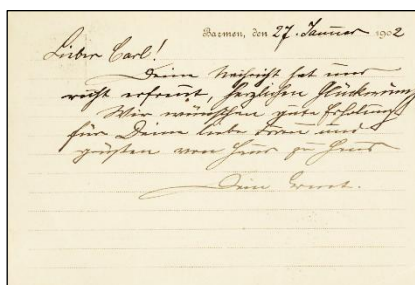 Barmen, den 27. Januar 1902
Lieber Carl!
Deine Nachricht hat uns
recht erfreut, herzlichen Glückwunsch
Wir wünschen gute Erholung
für Deine liebe Frau und
grüßen von Haus zu Haus
Dein Ernst.